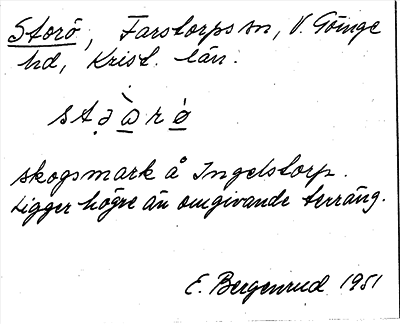 Storö, Farstorps sn, V. Göinge
hd, Krist. län.
skogsmark å Ingelstorp.
Ligger högre än omgivande terräng.
E. Bergenrud 1951